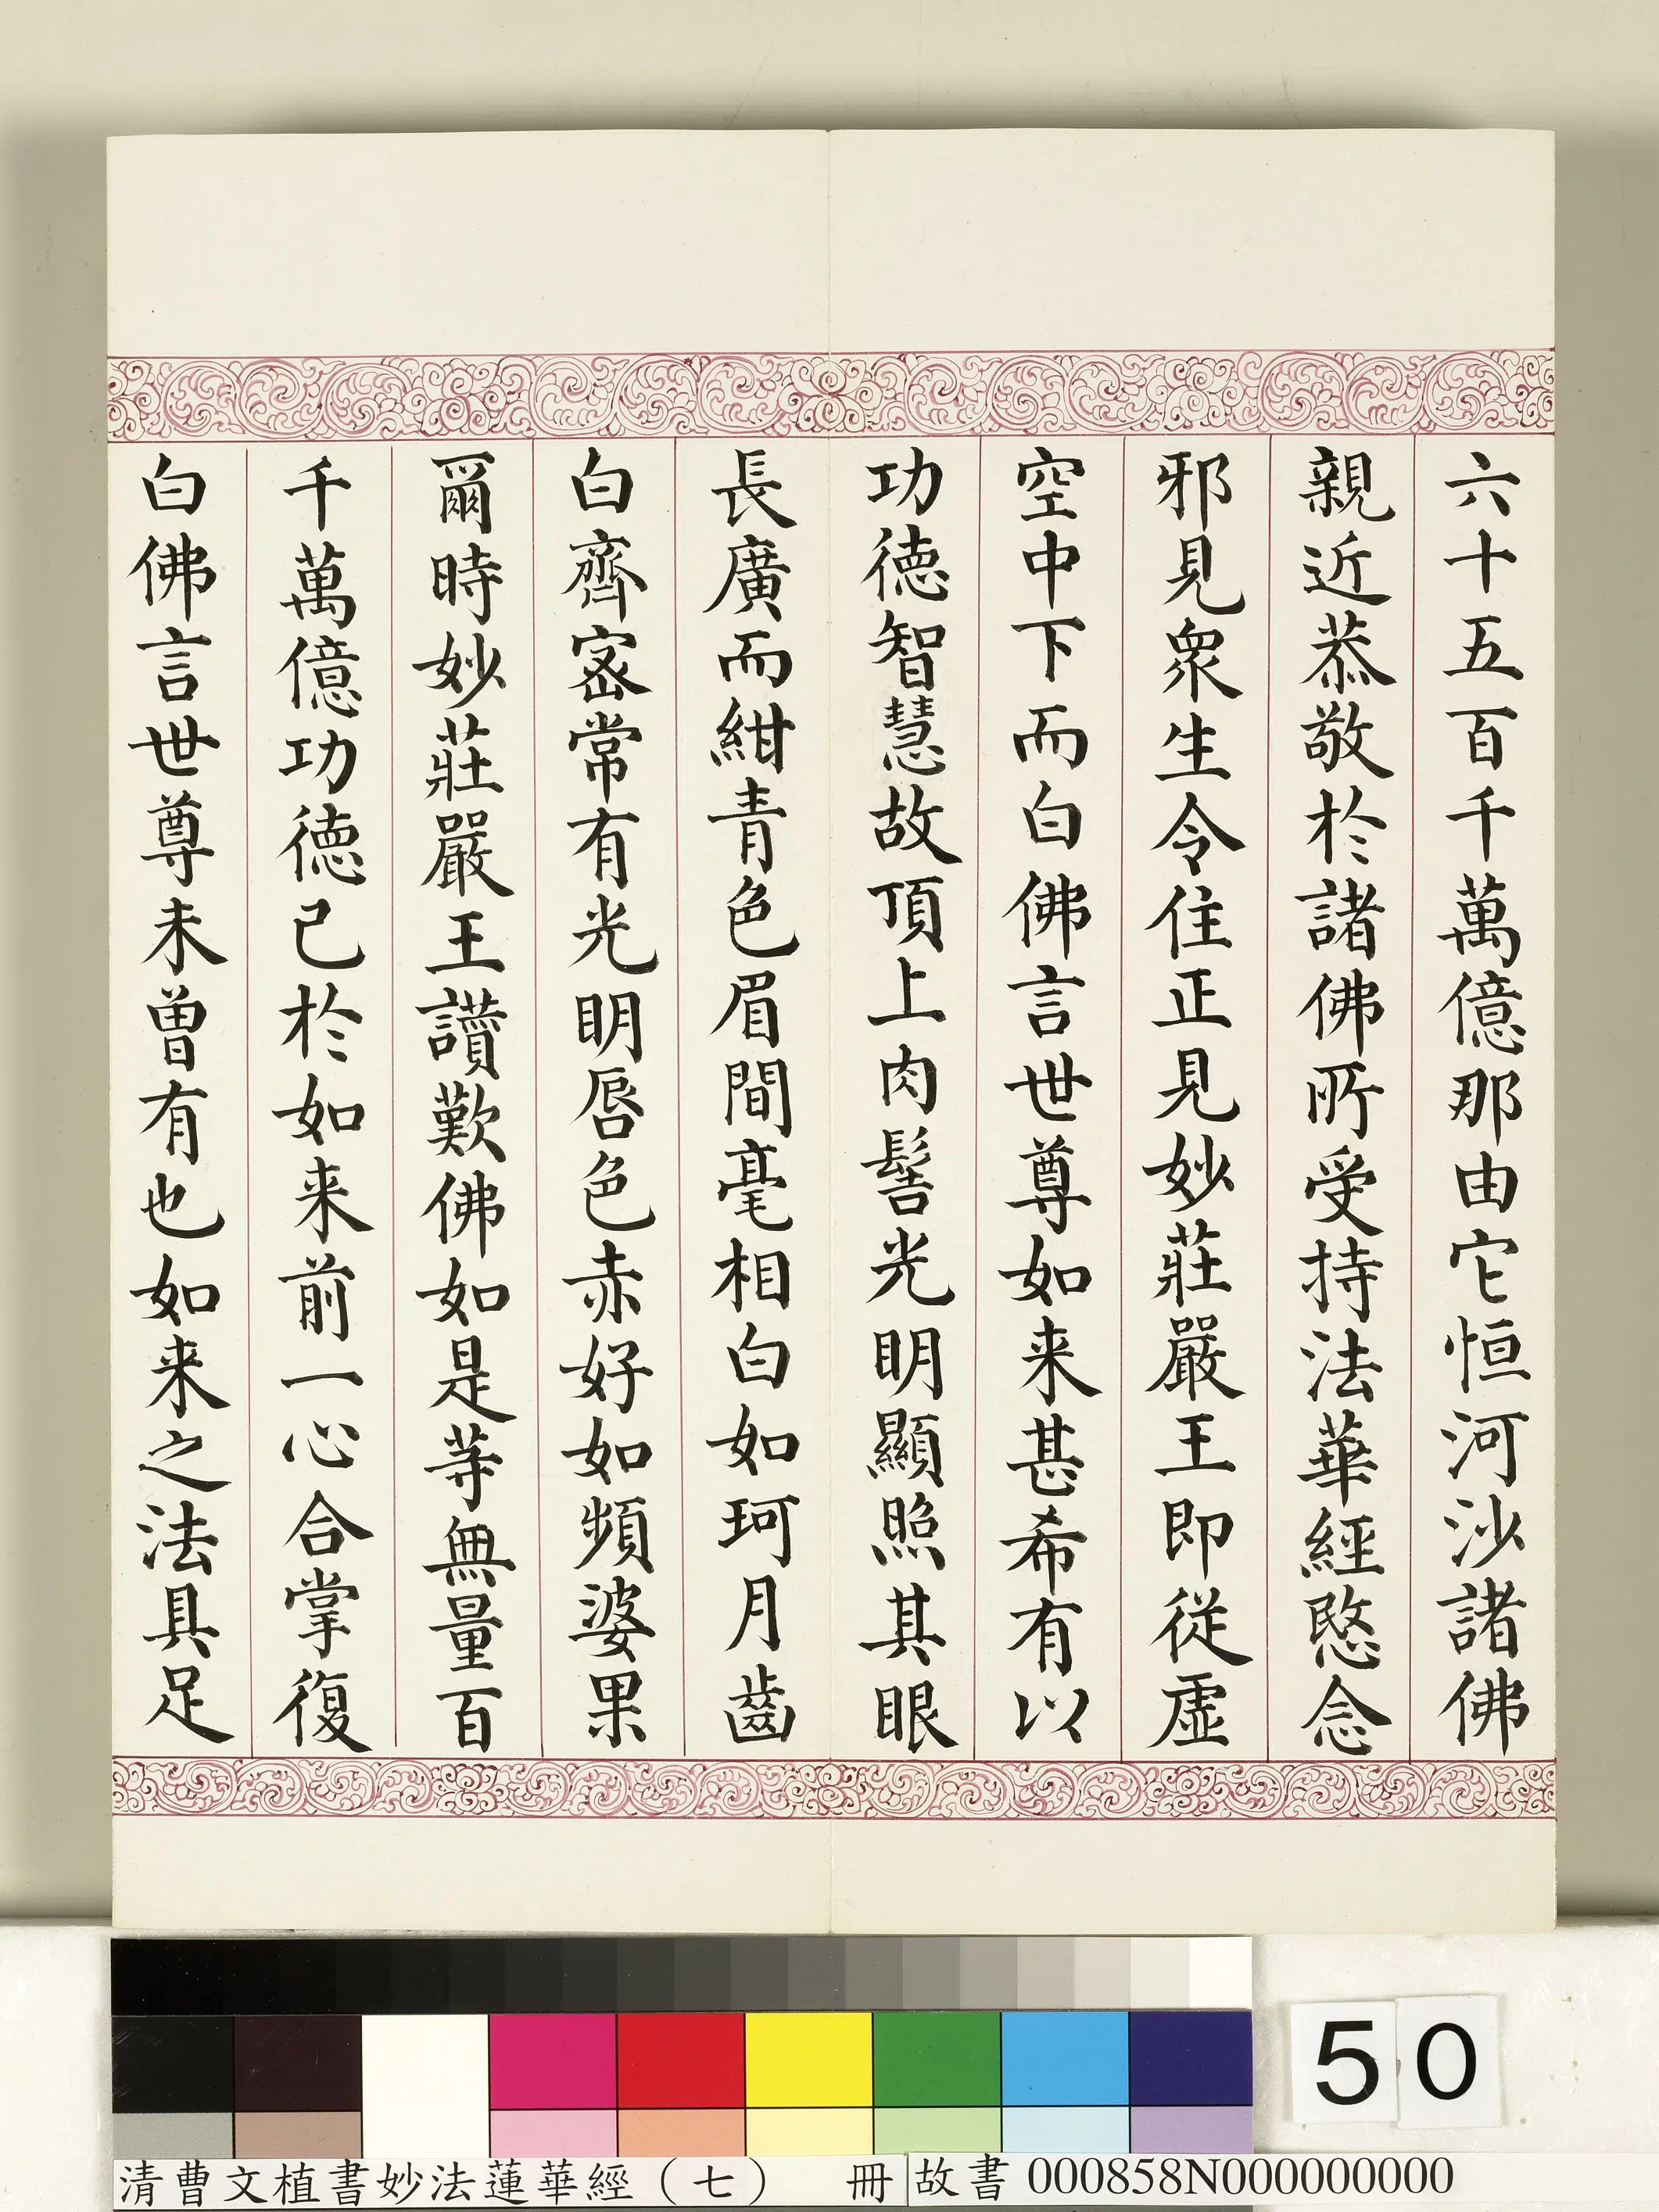 六十五百千萬億那由它恒河沙諸佛
親近恭敬於諸佛所受持法華經愍念
邪見衆生令住正見妙莊嚴王即從虛
空中下而白佛言世尊如来甚希有以
功徳智慧故頂上肉髻光明顯照其眼
長廣而紺青色眉間毫相白如珂月齒
白齊密常有光明唇色赤好如頻婆果
爾時妙莊嚴王讚歎佛如是等無量百
千萬億功徳已於如来前一心合掌復
白佛言世尊未曾有也如来之法具足
50
清曹文植書妙法蓮華經（七） 冊 故書 000858N000000000